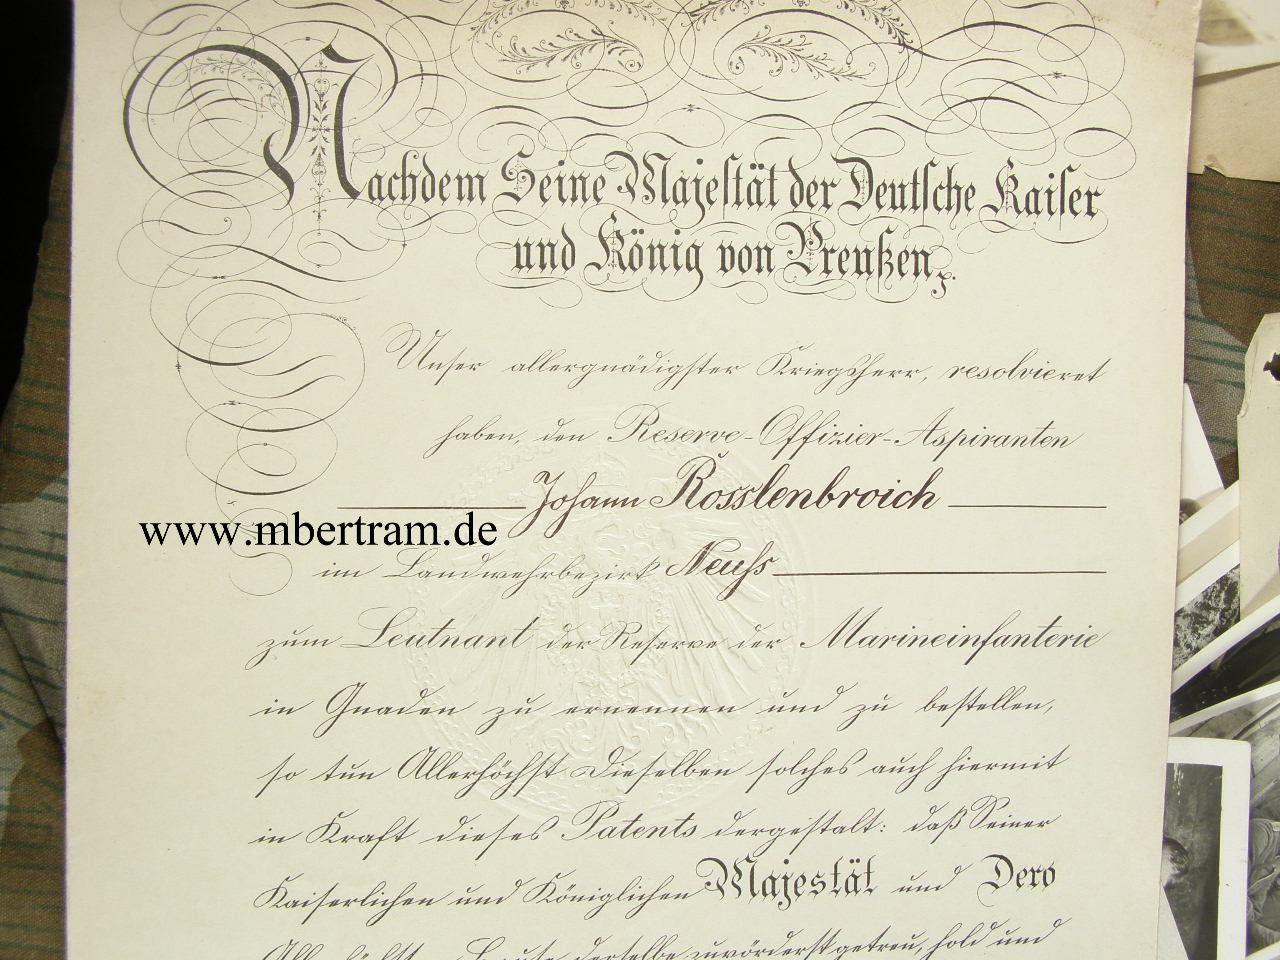 Nachdem Seine Majestät der Deutsche Kaiser
und König von Preußen
Unser allergnädigster Kriegsherr, resolvieret
haben, den Reserve-Offizier-Aspiranten
Johann Rosslenbroich
www.mbertram.de
im Landwehrbezirk Neuss
zum Leutnant der Reserve der Marineinfanterie
in Gnaden zu ernennen und zu bestellen,
so tun Allerhöchst Dieselben solches auch hiermit
in Kraft dieses Patents dergestalt: daß Seiner
Kaiserlichen und Königlichen Majestät und Dero
derselbe zuvörderst getreu, hold und